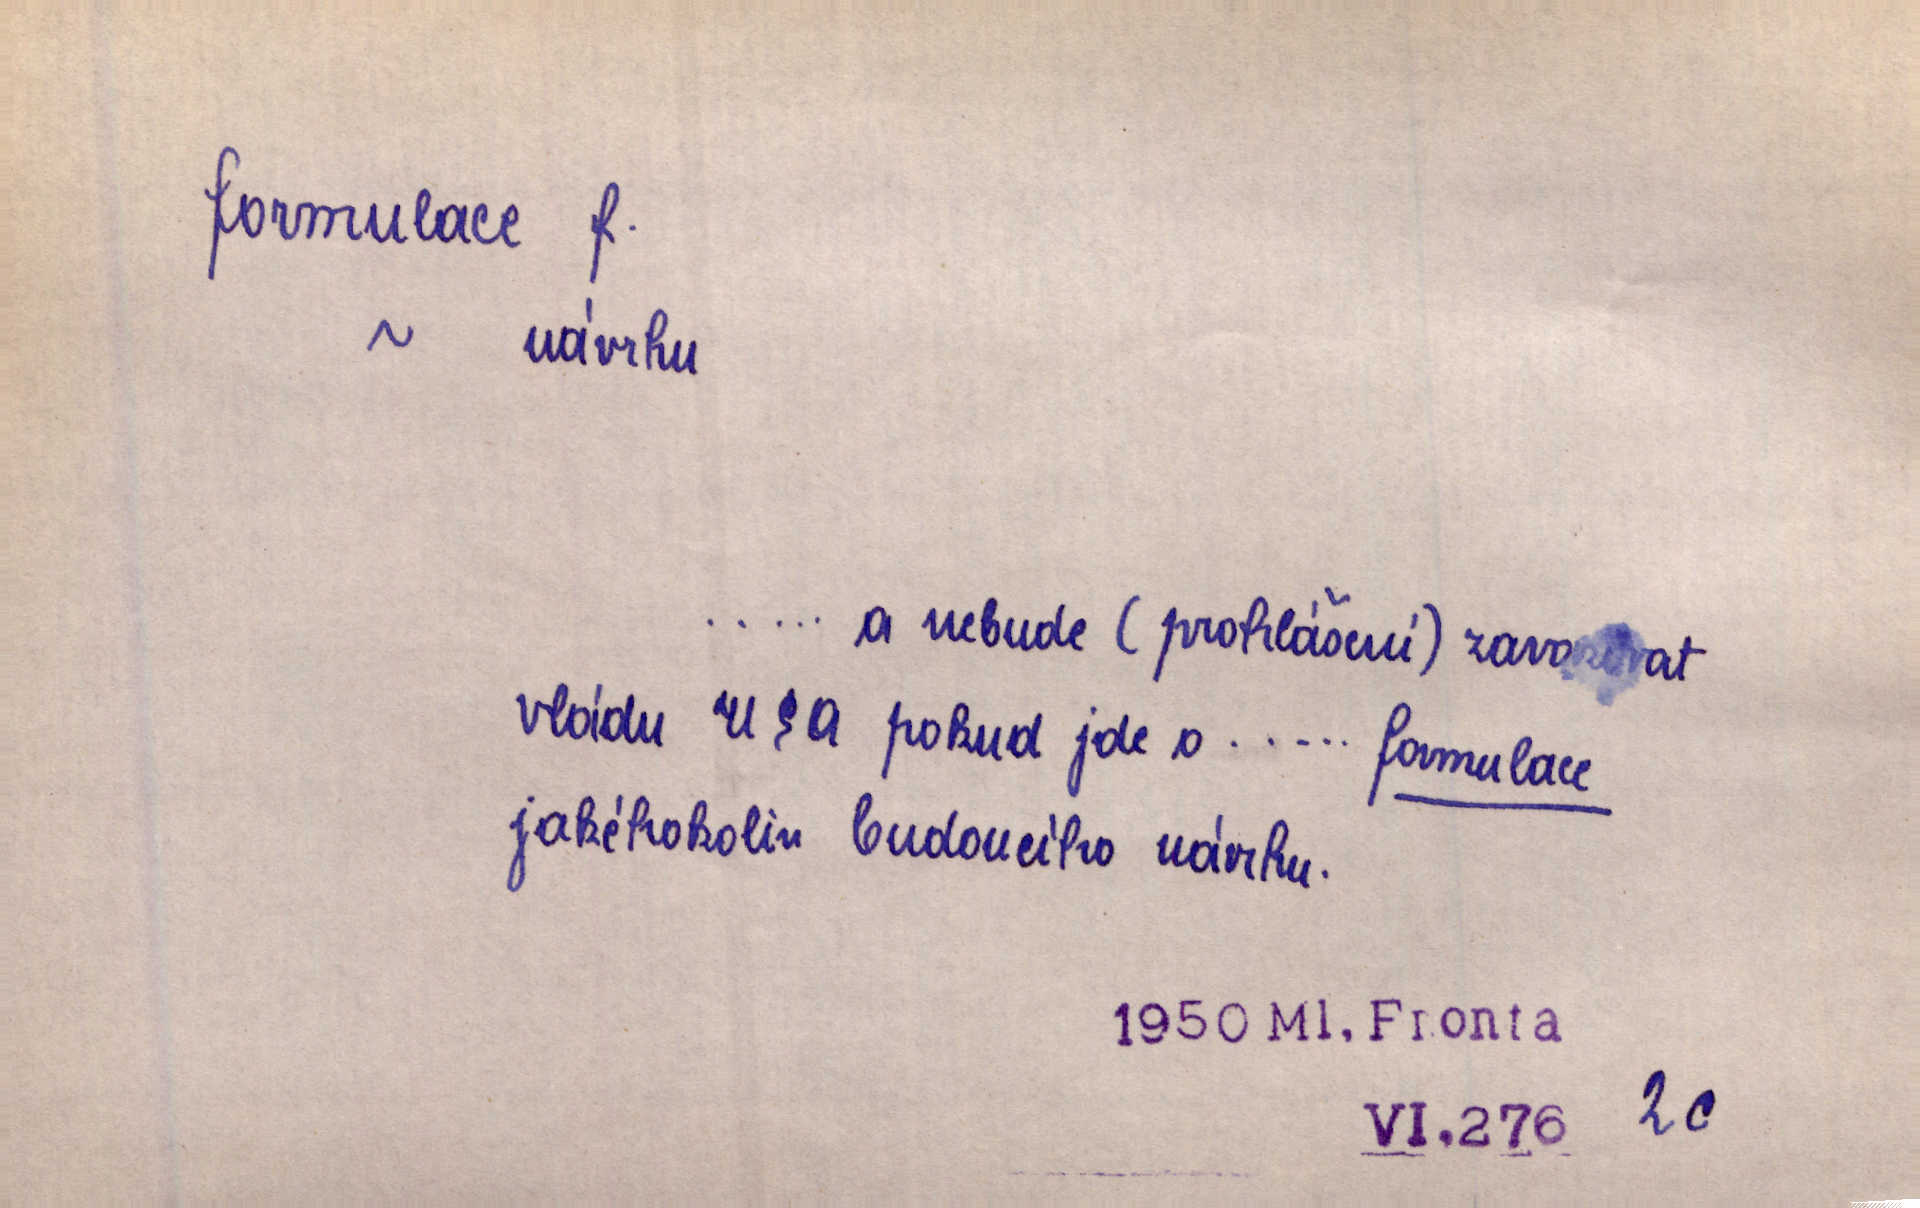 formulace f.
~ návrhu
..... a nebude (prohlášení) zavazovat
vládu USA pokud jde o ..... formulace
jakéhokoliv budoucího návrhu.
1950 Ml. Fronta
VI.276 2c